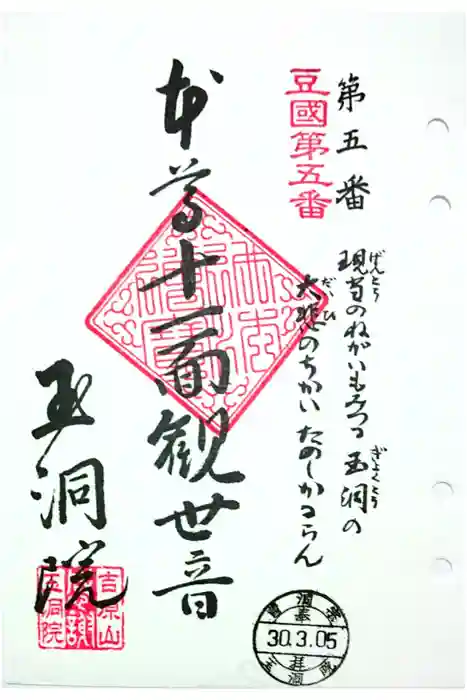 第五番
豆國第五番
現当のねがいもみつつ玉洞の
げんとう
ぎょくとう
大悲のちかいたのしかるらん
だいひ
本尊十一面観世音
玉洞院
吉原山
玉洞院
30.3.05